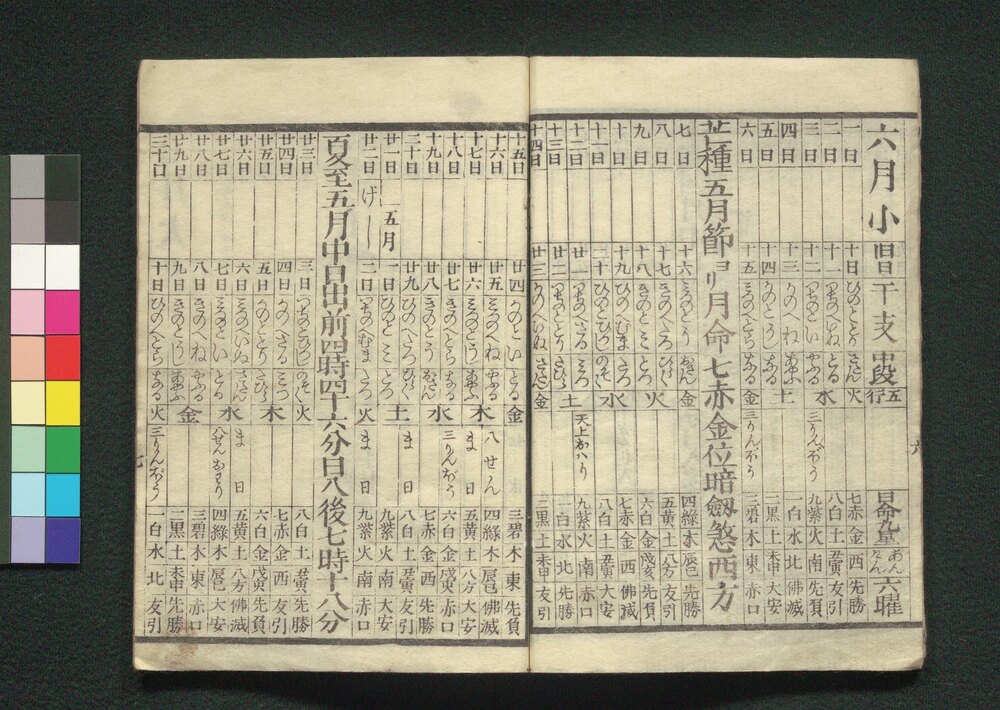 六月小 旧暦干支 中段 五行 六曜
一日 十日 ひのととり さだん 火 七赤 金 西 先勝
二日 十一 つちのへいぬ とる 水 八白 土 丑寅 友引
三日 十二 つちのとい やぶる 三りんぼう 九紫 火 南 先負
四日 十三 かのへね あやふ 土 一白 水 北 佛滅
五日 十四 かのとうし なる 二黒 土 未申 大安
六日 十五 みづのへとら おさん 金 三りんぼう 三碧 木 東 赤口
芒種五月節ヨリ月命七赤金位暗劔煞西方
七日 十六 みづのとう おさん 金 四緑 木 辰巳 先勝
八日 十七 きのへたつ ひらく 火 五黄 土 八方 友引
九日 十八 きのとみ とづ 六白 金 戌亥 先負
十日 十九 ひのへむま たつ 水 七赤 金 西 佛滅
十一日 二十 ひのとひつじ のぞく 八白 土 丑寅 大安
十二日 廿一 つちのへさる みつ 土 天上おハり 九紫 火 南 赤口
十三日 廿二 つちのととり たいら 一白 水 北 先勝
十四日 廿三 かのへいぬ さだん 金 二黒 土 未申 友引
十五日 廿四 かのとい とる 金 三碧 木 東 先負
十六日 廿五 みづのへね やぶる 木 八せん 四緑 木 辰巳 佛滅
十七日 廿六 みづのとうし あやふ ま日 五黄 土 八方 大安
十八日 廿七 きのへとら なる 水 三りんぼう 六白 金 戌亥 赤口
十九日 廿八 きのとう おさん 七赤 金 西 先勝
二十日 廿九 ひのへたつ ひらく 土 ま日 八白 土 丑寅 友引
廿一日 五月 一日 ひのとみ とづ 九紫 火 南 大安
廿二日 げし 二日 つちのへむま たつ 火 ま日 九紫 火 南 赤口
夏至五月中日出前四時四十六分日入後七時十八分
廿三日 三日 つちのとひつじ のぞく 火 八白 土 丑寅 先勝
廿四日 四日 かのへさる みつ 木 七赤 金 西 友引
廿五日 五日 かのととり たいら 六白 金 戌亥 先負
廿六日 六日 みづのへいぬ さだん 水 ま日 五黄 土 八方 佛滅
廿七日 七日 みづのとい とる 八せんおわり 四緑 木 辰巳 大安
廿八日 八日 きのへね やぶる 金 三碧 木 東 赤口
廿九日 九日 きのとうし あやふ 二黒 土 未申 先勝
三十日 十日 ひのへとら なる 火 三りんぼう 一白 水 北 友引
六
七